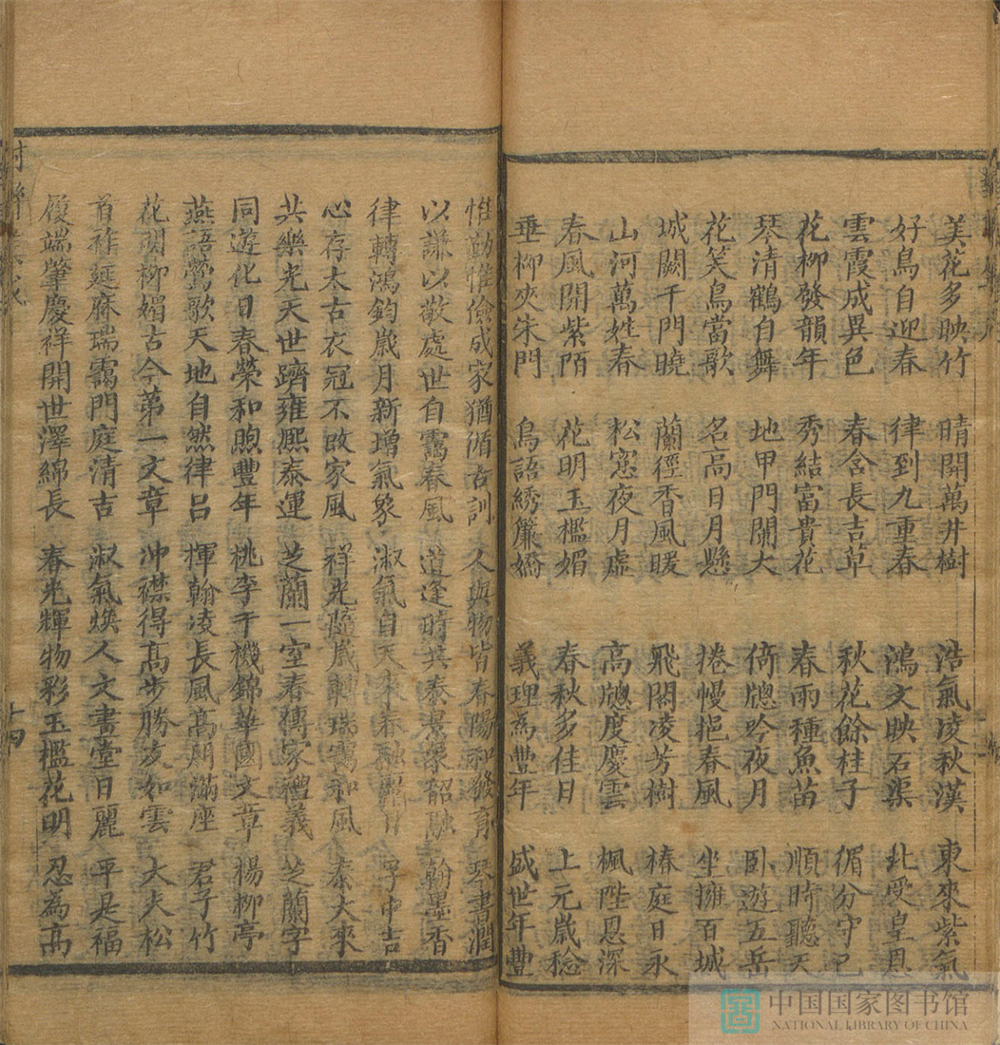 美花多映竹 晴開萬井樹 浩氣凌秋漢 東來紫氣
好鳥自迎春 律到九重春 鴻文映石渠 北受皇恩
雲霞成異色 春含長吉草 秋花餘桂子 循分守己
花柳發韻年 秀結富貴花 春雨種魚苗 順時聽天
琴清鶴自舞 地甲門閈大 倚牕吟夜月 卧遊五岳
花笑鳥當歌 名高日月懸 捲幔挹春風 坐擁百城
城闕千門曉 蘭徑香風暖 飛閣凌芳樹 椿庭日永
山河萬姓春 松窓夜月虛 高牕度慶雲 楓陛恩深
春風開紫陌 花明玉檻媚 春秋多佳日 上元歲稔
垂柳夾朱門 鳥語綉簾嬌 義理為豐年 盛世年豐
惟勤惟儉成家猶循古訓 人與物皆春陽和發育 琴書潤
以謙以敬處世自靄春風 道逢時共泰景象韶融 翰墨香
律轉鴻鈞歲月新增氣象 淑氣自天來春融 孚中吉
心存太古衣冠不敗家風 祥光隨歲轉瑞靄和風 泰大來
共樂光天世躋雍熙泰運 芝蘭一室春傳家禮義 芝蘭字
同遊化日春榮和煦豐年 桃李千機錦華國文章 楊柳亭
燕語鶯歌天地自然律呂 揮翰凌長風高朋滿座 君子竹
花明柳媚古今第一文章 冲襟得高步勝友如雲 大夫松
首祚延庥瑞靄門庭清吉 淑氣煥人文畫堂日麗 平是福
履端肇慶祥開世澤綿長 春光輝物彩玉檻花明 忍為高
十四
中国国家图书馆
NATIONAL LIBRARY OF CHINA